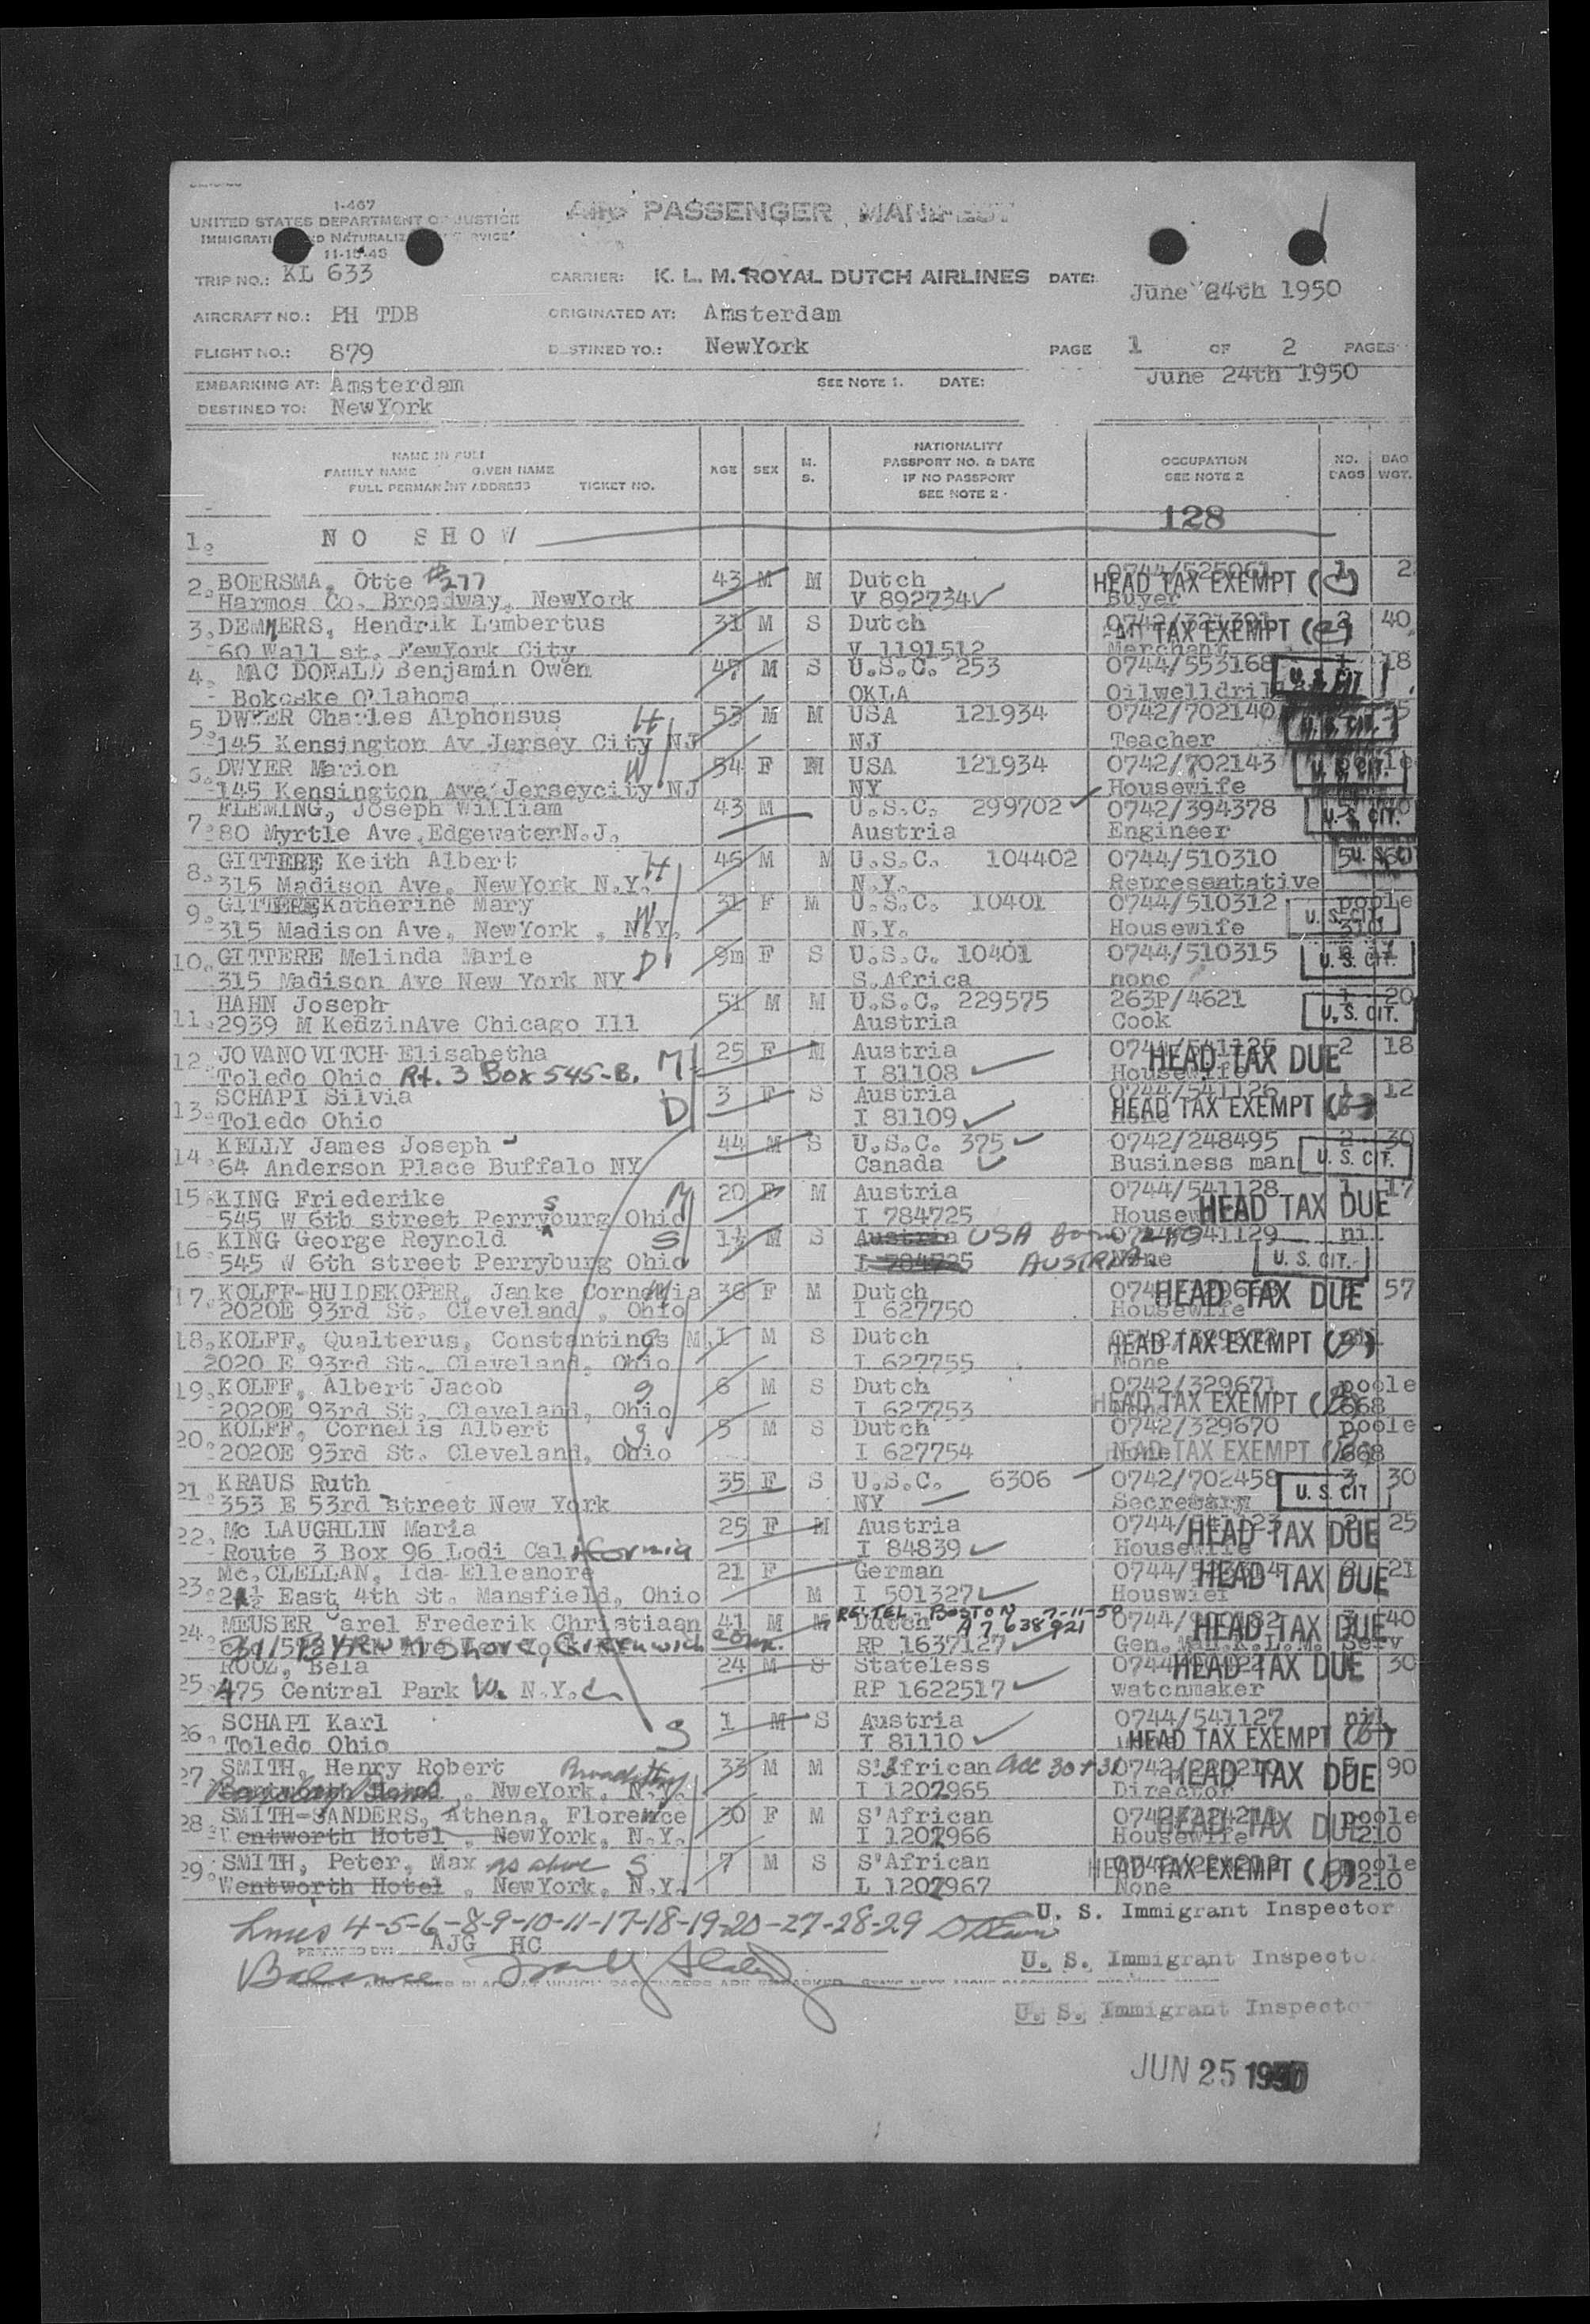 1-467
UNITED STATES DEPARTMENT OF JUSTICE
AIR PASSENGER MANIFEST
11-15-48
TRIP NO.: KL 633
CARRIER: K. L. M. ROYAL DUTCH AIRLINES DATE: June 24th 1950
AIRCRAFT NO.: PH TDB ORIGINATED AT: Amsterdam
FLIGHT NO.: 879 DESTINED TO.: NewYork PAGE 1 OF 2 PAGES
EMBARKING AT: Amsterdam SEE NOTE 1. DATE: June 24th 1950
DESTINED TO: NewYork
NAME IN FULL
FAMILY NAME GIVEN NAME
FULL PERMANENT ADDRESS TICKET NO.
AGE SEX M. S.
NATIONALITY
PASSPORT NO. & DATE
IF NO PASSPORT
SEE NOTE 2
OCCUPATION
SEE NOTE 2
NO. BAGS
BAG WGT.
128
1. NO SHOW
2. BOERSMA, Otte #277 43 M M Dutch HEAD TAX EXEMPT
Harmos Co. Broadway, NewYork V 892734 Buyer
3. DEMMERS, Hendrik Lambertus 31 M S Dutch TAX EXEMPT 40
60 Wall st. NewYork City V 1191512 Merchant
4. MAC DONALD Benjamin Owen 47 M S U.S.C. 253 0744/553168 18
Bokoske Oklahoma OKLA U.S. CIT.
5. DWYER Charles Alphonsus H 53 M M USA 121934 0742/702140
145 Kensington Av Jersey City NJ NJ Teacher U.S. CIT.
6. DWYER Marion W 54 F M USA 121934 0742/702143
145 Kensington Ave Jerseycity NJ NY Housewife
7. FLEMING, Joseph William 43 M U.S.C. 299702 0742/394378
80 Myrtle Ave,EdgewaterN.J. Austria Engineer U.S. CIT.
8. GITTERE Keith Albert H 46 M M U.S.C. 104402 0744/510310
315 Madison Ave. NewYork N.Y. N.Y. Representative
9. GITTERE Katherine Mary W 31 F M U.S.C. 10401 0744/510312 poole
315 Madison Ave, NewYork , N.Y. N.Y. Housewife U.S. CIT.
10. GITTERE Melinda Marie D 9m F S U.S.C. 10401 0744/510315
315 Madison Ave New York NY S.Africa none U. S. CIT.
11. HAHN Joseph 51 M M U.S.C. 229575 263P/4621 1 20
2939 M KedzinAve Chicago Ill Austria Cook U. S. CIT.
12. JOVANOVITCH Elisabetha M 25 F M Austria HEAD TAX DUE 2 18
Toledo Ohio Rt. 3 Box 545-B. I 81108 Housewife
13. SCHAPI Silvia D 3 F S Austria 0744/541126 1 12
Toledo Ohio I 81109 HEAD TAX EXEMPT
14. KELLY James Joseph 44 M S U.S.C. 375 0742/248495 2 30
64 Anderson Place Buffalo NY Canada Business man U. S. CIT.
15. KING Friederike M 20 F M Austria 0744/541128 1 17
545 W 6th street Perrysburg Ohio I 784725 HEAD TAX DUE
16. KING George Reynold S 1½ M S USA Born
545 W 6th street Perryburg Ohio AUSTRIA None U. S. CIT.
17. KOLFF-HUIDEKOPER, Janke Cornelia 36 F M Dutch HEAD TAX DUE 57
2020E 93rd St. Cleveland , Ohio I 627750 Housewife
18. KOLFF, Qualterus, Constantinus M.I M S Dutch HEAD TAX EXEMPT
2020 E 93rd St. Cleveland, Ohio I 627755 None
19. KOLFF, Albert Jacob 6 M S Dutch 0742/329671 poole
2020E 93rd St. Cleveland, Ohio I 627753 HEAD TAX EXEMPT 668
20. KOLFF, Cornelis Albert 5 M S Dutch 0742/329670 poole
2020E 93rd St. Cleveland, Ohio I 627754 HEAD TAX EXEMPT 668
21. KRAUS Ruth 35 F S U.S.C. 6306 0742/702458 3 30
353 E 53rd street New York NY Secretary U. S. CIT
22. Mc LAUGHLIN Maria 25 F M Austria HEAD TAX DUE 25
Route 3 Box 96 Lodi California I 84839 Housewife
23. Mc.CLELLAN, Ida Elleanore 21 F German HEAD TAX DUE 21
East 4th St. Mansfield, Ohio M I 501327 Houswief
24. MEUSER Karel Frederik Christiaan 41 M M Dutch REL TEL BOSTON 7-11-50 A7 638921 HEAD TAX DUE 40
BYRUM Shore, Greenwich Conn. RP 1637127
25. ROOZ, Bela 24 M S Stateless HEAD TAX DUE 30
475 Central Park W. N.Y.C. RP 1622517 watchmaker
26. SCHAPI Karl S 1 M S Austria 0744/541127 nil
Toledo Ohio I 81110 HEAD TAX EXEMPT
27. SMITH, Henry Robert 33 M M S'African all 30+31 HEAD TAX DUE 90
, NweYork, N.Y. I 1207965 Director
28. SMITH-SANDERS, Athena, Florence 30 F M S'African HEAD TAX DUE poole
Wentworth Hotel , NewYork, N.Y. I 1207966 Housewife 210
29. SMITH, Peter, Max as above S 7 M S S'African HEAD TAX EXEMPT poole
Wentworth Hotel , NewYork, N.Y. L 1207967 None 210
Lines 4-5-6-8-9-10-11-17-18-19-20-27-28-29 U. S. Immigrant Inspector
PREPARED BY: AJG HC
Balance U. S. Immigrant Inspector
U. S. Immigrant Inspector
JUN 25 1950